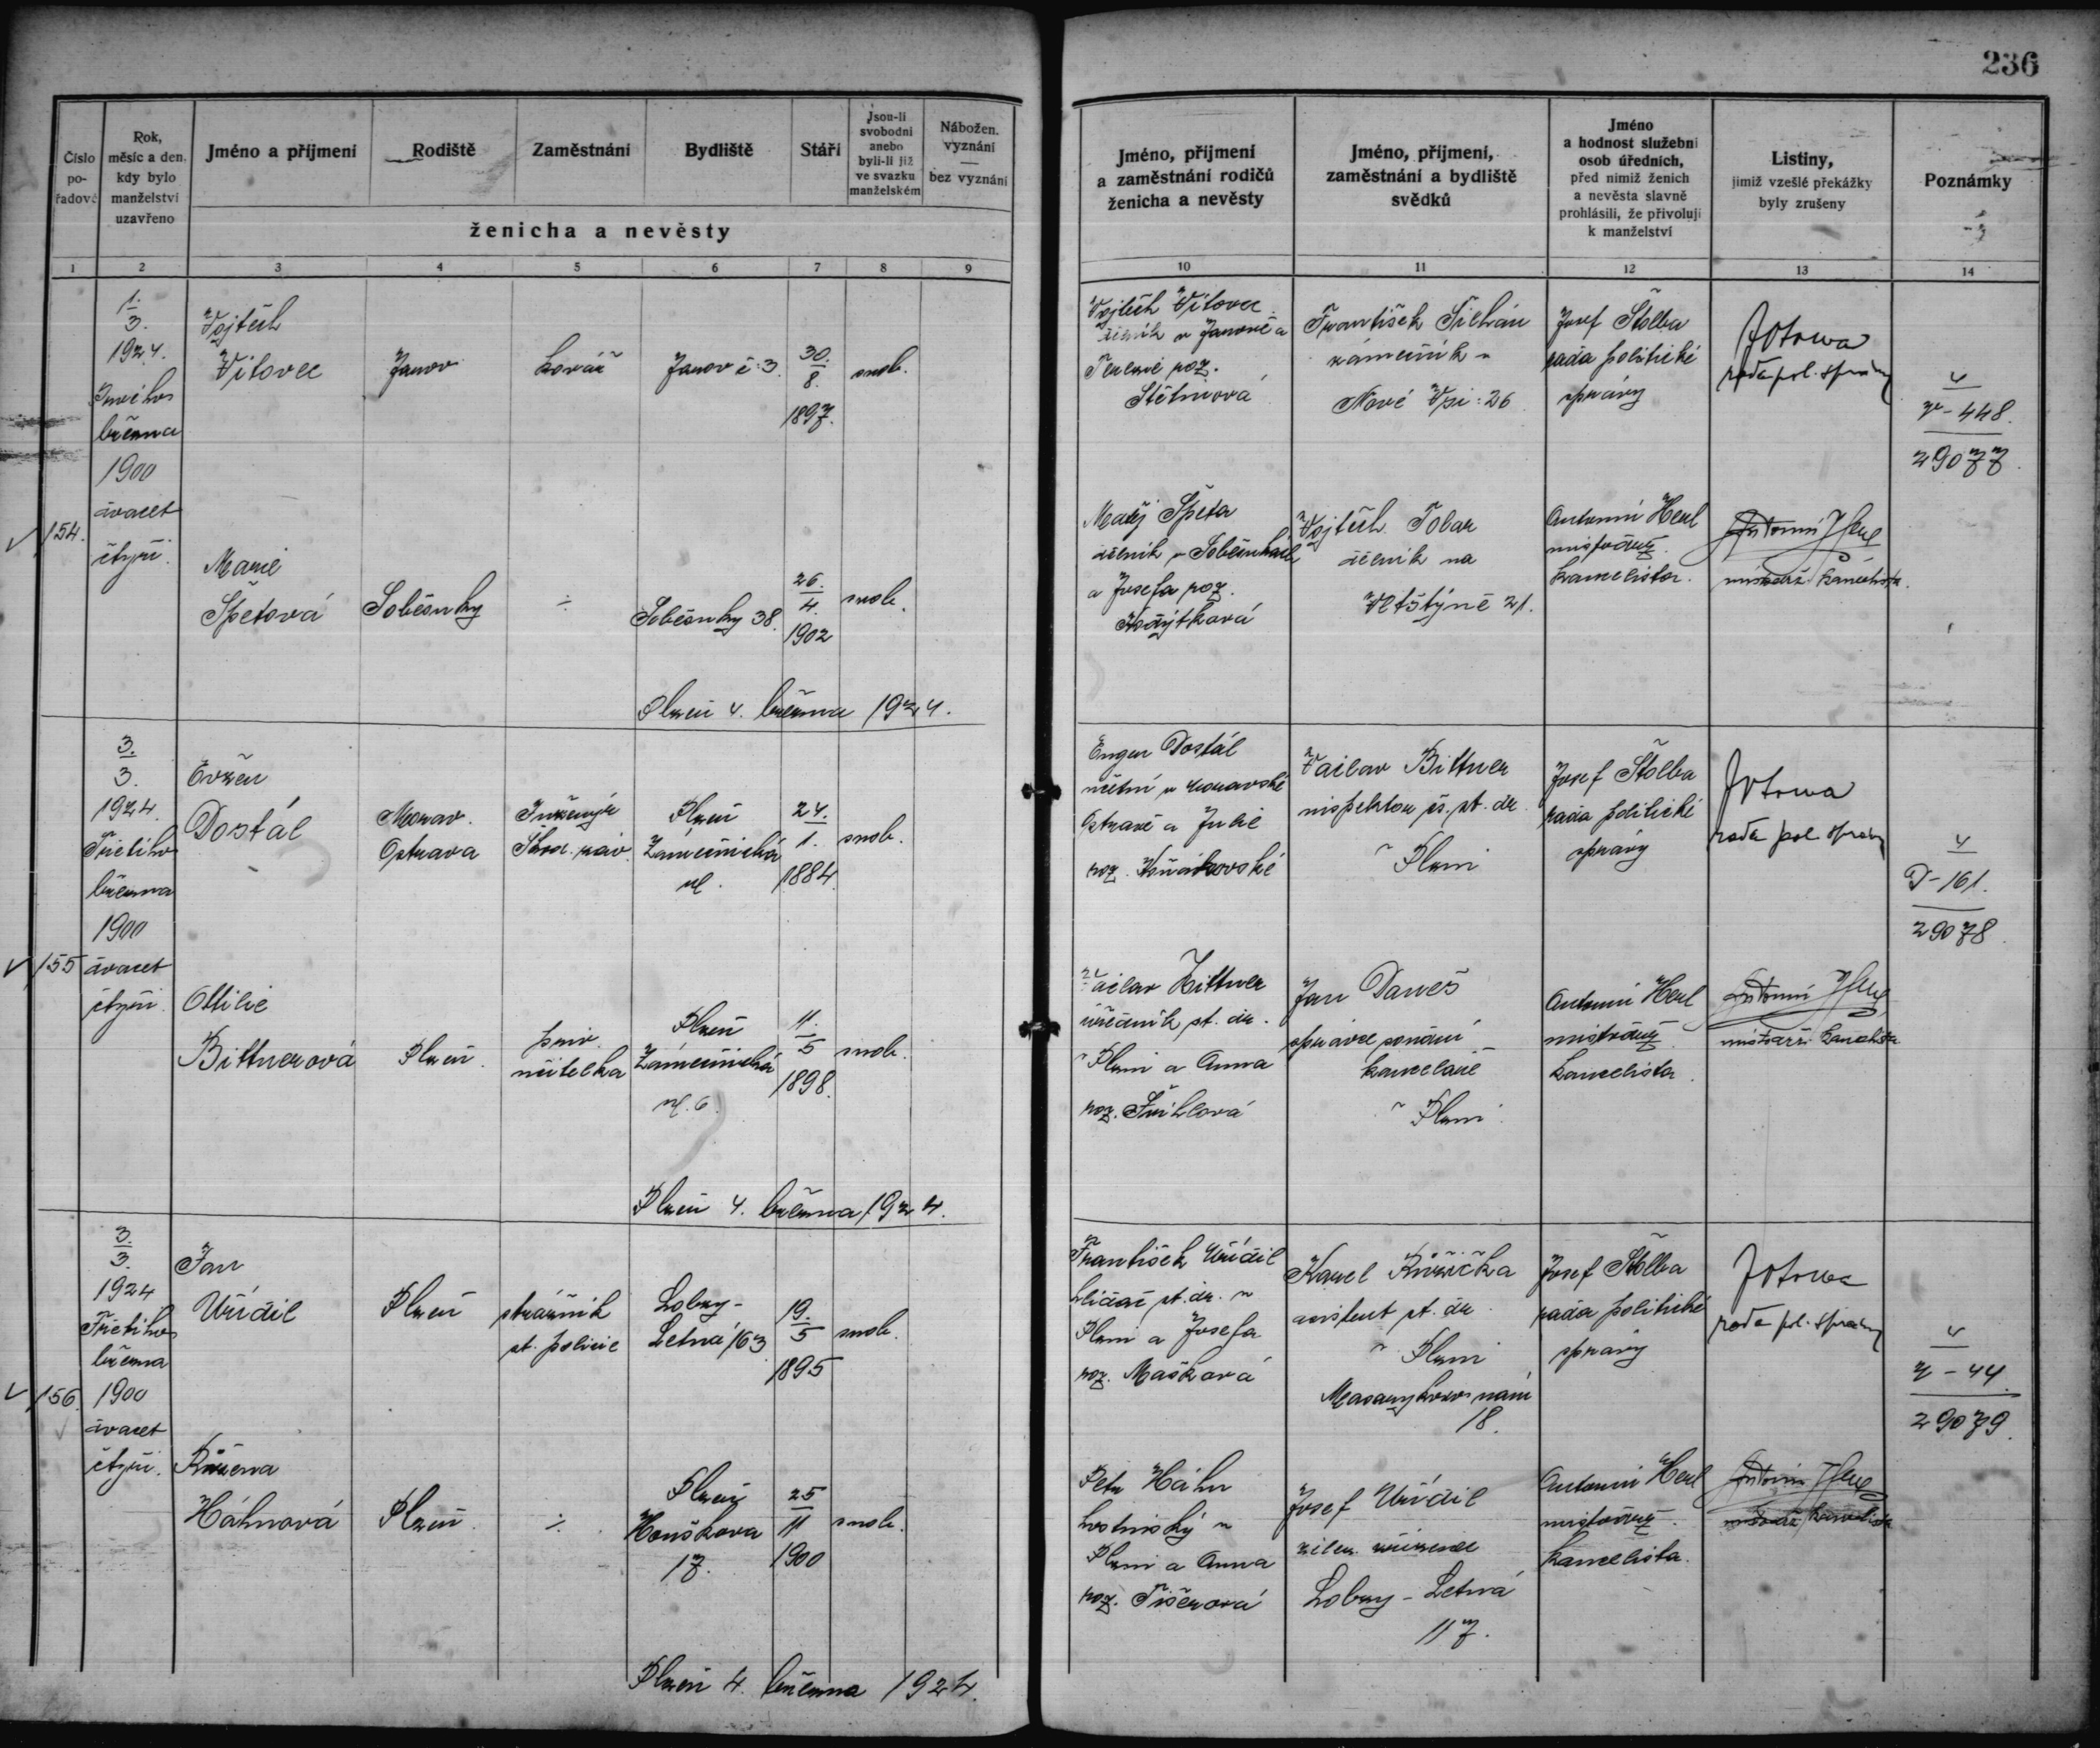 236
Číslo pořadové
Rok, měsíc a den, kdy bylo manželství uzavřeno
Jméno a příjmení
Rodiště
Zaměstnání
Bydliště
Stáří
Jsou-li svobodni anebo byli-li již ve svazku manželském
Nábožen. vyznání — bez vyznání
ženicha a nevěsty
Jméno, příjmení a zaměstnání rodičů ženicha a nevěsty
Jméno, příjmení, zaměstnání a bydliště svědků
Jméno a hodnost služební osob úředních, před nimiž ženich a nevěsta slavně prohlásili, že přivolují k manželství
Listiny, jimiž vzešlé překážky byly zrušeny
Poznámky
1 2 3 4 5 6 7 8 9 10 11 12 13 14
154.
1.
3.
1924.
Prvého
března
1900
dvacet
čtyři.
Vojtěch
Vítovec
Janov
kovář
Janov č: 3
30.
8.
1897.
svob.
Vojtěch Vítovec
dělník v Janově a
Terezie roz.
František
zámečník v
Nové Vsi: 26
Josef Štolba
rada politické
správy
rada pol. správy
448.
29077.
Marie
Špetová
Soběsuky
÷
Soběsuky 38.
26.
4.
1902
svob.
Matěj Špeta
dělník v Soběsukách
a Josefa roz.
Vojtěch Tolar
dělník na
Vlčtýně 21.
Antonín Herl
místodrž.
kancelista.
Antonín Herl
místodrž. kancelista.
Plzeň 4. března 1924.
155
3.
3.
1924.
Třetího
března
1900
dvacet
čtyři.
Evžen
Dostál
Morav.
Ostrava
Inženýr
Škod. záv.
Plzeň
Zámečnická
ul.
24.
1.
1884.
svob.
Eugen Dostál
účetní v Moravské
Ostravě a Julie
roz.
Václav Bittner
inspektor čs. st. dr.
v Plzni
Josef Štolba
rada politické
správy
rada pol. správy
D-161.
29078.
Ottilie
Bittnerová
Plzeň.
priv.
učitelka
Plzeň
Zámečnická
ul. 6.
11.
5
1898.
svob.
Václav Bittner
úředník st. dr.
v Plzni a Anna
roz.
Jan Daneš
správce pomocné
kanceláře
v Plzni
Antonín Herl
místodrž.
kancelista.
Antonín Herl
místodrž. kancelista
Plzeň 4. března 1924.
156.
3.
3.
1924
Třetího
března
1900
dvacet
čtyři.
Jan
Uřídil
Plzeň
strážník
st. policie
Lobzy-
Letná 163
19.
5
1895
svob.
František Uřídil
hlídač st. dr. v
Plzni a Josefa
roz. Mašková
Karel Růžička
asistent st. dr.
v Plzni
Masarykovo nám
18.
Josef Štolba
rada politické
správy
rada pol. správy
44.
29079.
Růžena
Háhnová
Plzeň.
÷.
Plzeň
Houškova
17.
25
11
1900
svob.
Petr Háhn
hostinský v
Plzni a Anna
roz. Tišerová
Josef Uřídil
žel. zřízenec
Lobzy - Letná
117.
Antonín Herl
místodrž.
kancelista.
Antonín Herl
místodrž. kancelista
Plzeň 4. března 1924.